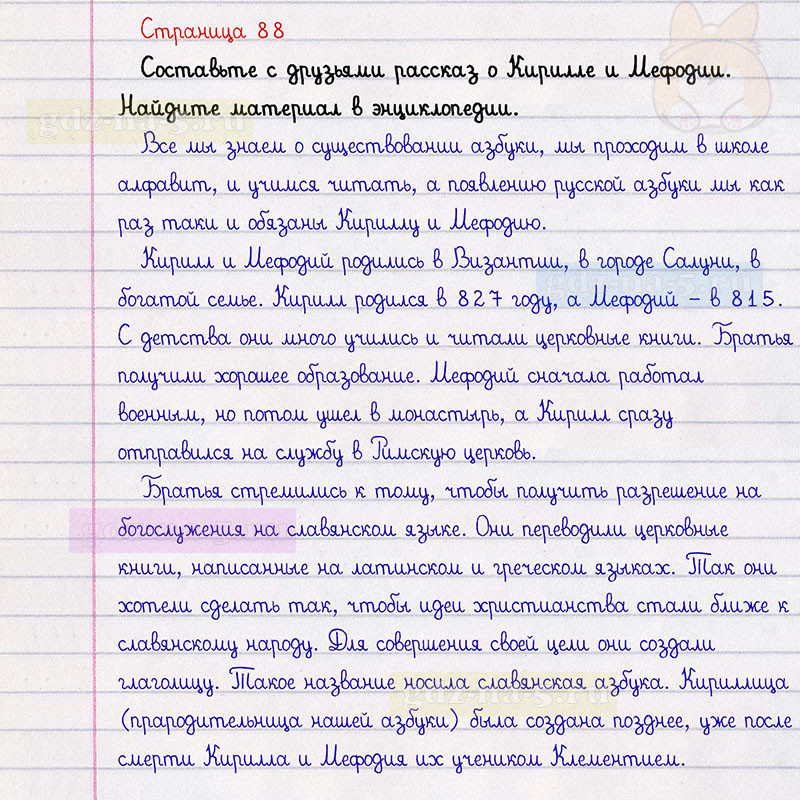 Страница 88
Составьте с друзьями рассказ о Кирилле и Мефодии.
Найдите материал в энциклопедии.
Все мы знаем о существовании азбуки, мы проходим в школе
алфавит, и учимся читать, а появлению русской азбуки мы как
раз таки и обязаны Кириллу и Мефодию.
Кирилл и Мефодий родились в Византии, в городе Салуни, в
богатой семье. Кирилл родился в 827 году, а Мефодий – в 815.
С детства они много учились и читали церковные книги. Братья
получили хорошее образование. Мефодий сначала работал
военным, но потом ушел в монастырь, а Кирилл сразу
отправился на службу в Римскую церковь.
Братья стремились к тому, чтобы получить разрешение на
богослужения на славянском языке. Они переводили церковные
книги, написанные на латинском и греческом языках. Так они
хотели сделать так, чтобы идеи христианства стали ближе к
славянскому народу. Для совершения своей цели они создали
глаголицу. Такое название носила славянская азбука. Кириллица
(прародительница нашей азбуки) была создана позднее, уже после
смерти Кирилла и Мефодия их учеником Клементием.